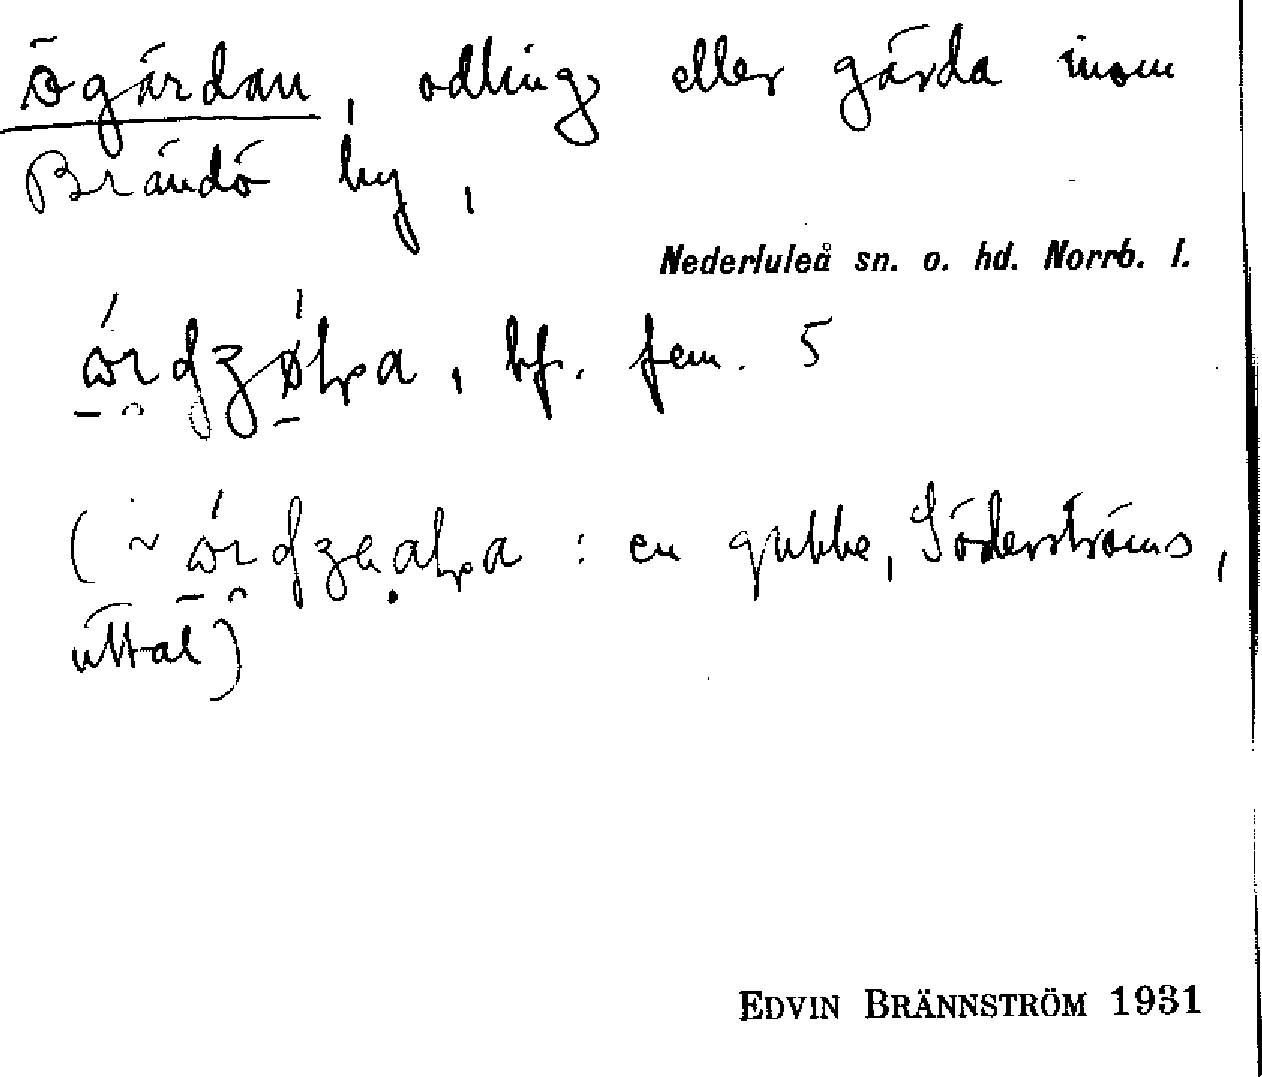 Ögärdan, odling eller gärda inom
Brändö by,
Nederluleå sn. o. hd. Norrb. l.
bf. fem. 5
( ~ : en gubbe, Söderströms,
uttal)
EDVIN BRÄNNSTRÖM 1931